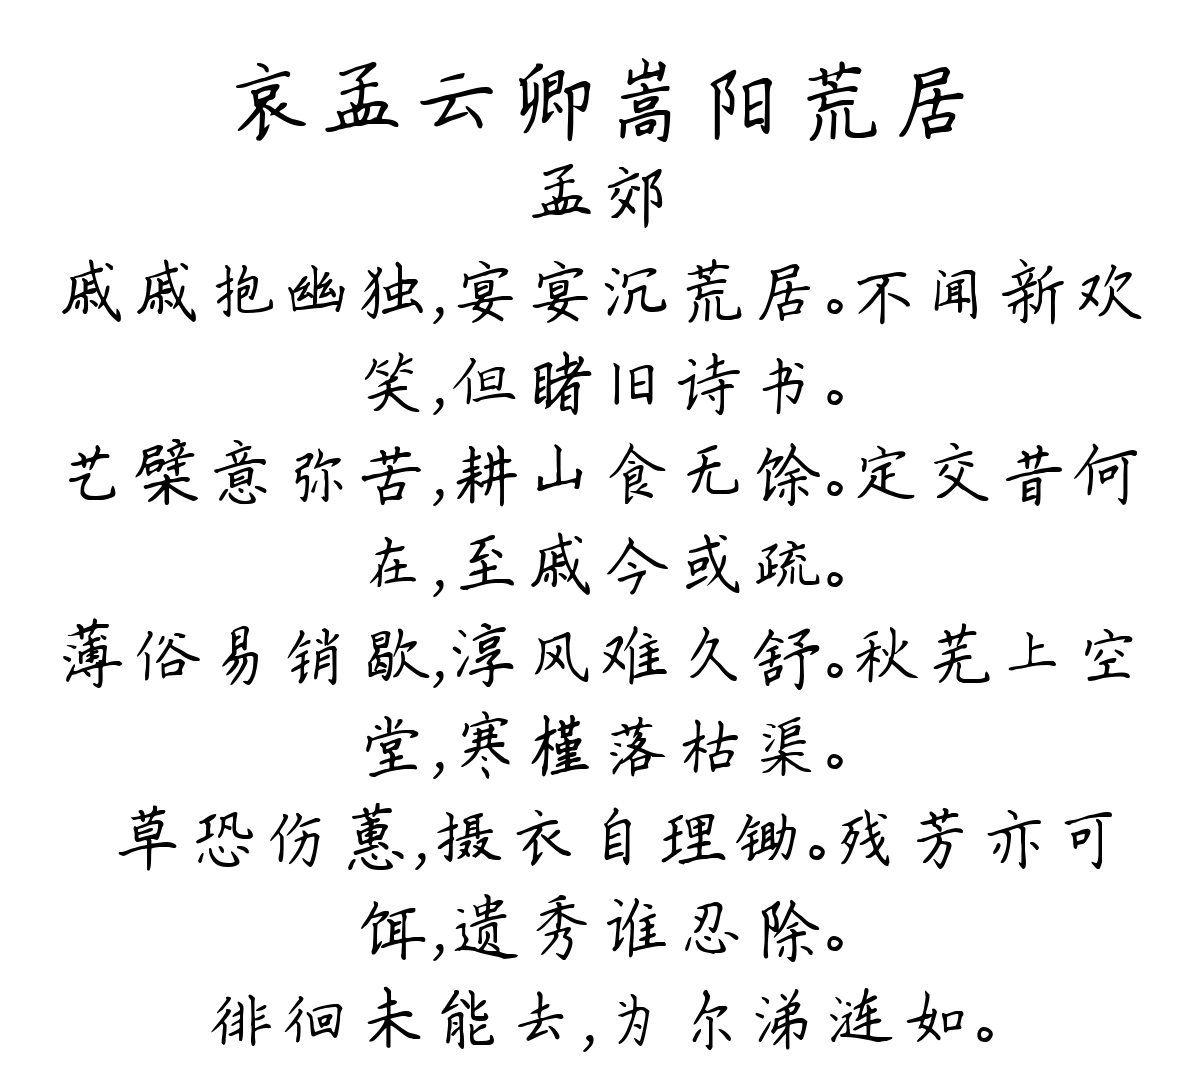 哀孟云卿嵩阳荒居
孟郊
戚戚抱幽独,宴宴沉荒居。不闻新欢
笑,但睹旧诗书。
艺檗意弥苦,耕山食无馀。定交昔何
在,至戚今或疏。
薄俗易销歇,淳风难久舒。秋芜上空
堂,寒槿落枯渠。
草恐伤蕙,摄衣自理锄。残芳亦可
饵,遗秀谁忍除。
徘徊未能去,为尔涕涟如。